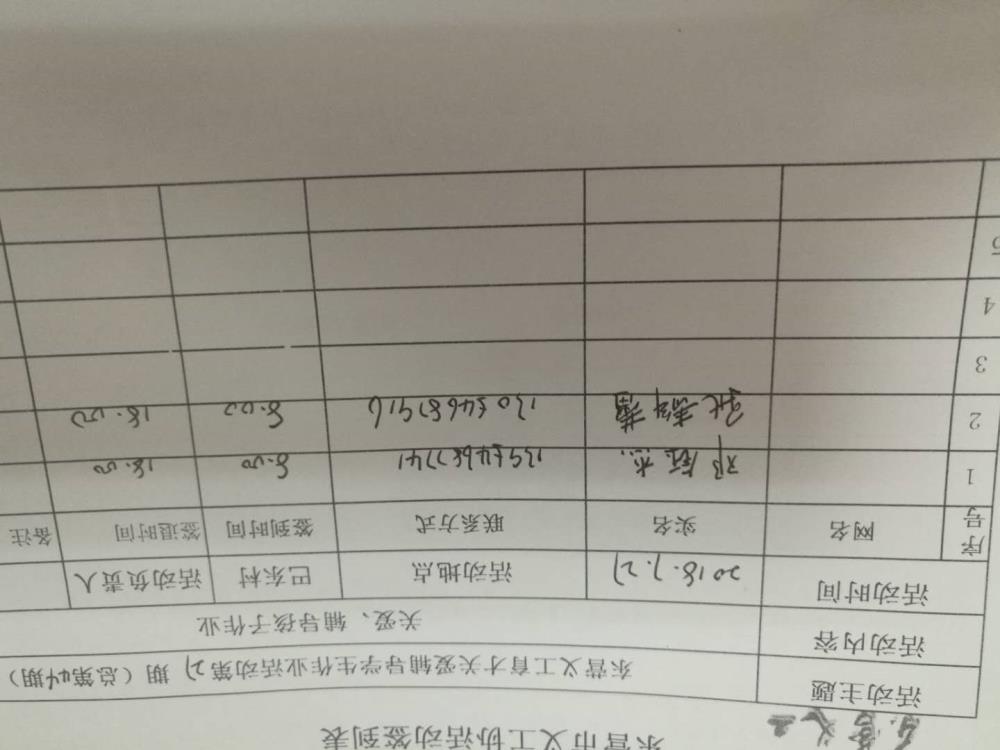 东营义工
东营市义工协活动签到表
活动主题 东营义工育才关爱辅导学生作业活动第27期（总第44期）
活动内容 关爱、辅导孩子作业
活动时间 2018.7.27 活动地点 巴东村 活动负责人
序号 网名 实名 联系方式 签到时间 签退时间 备注
1 8.00 18.00
2 8.00 18.00
3
4
5